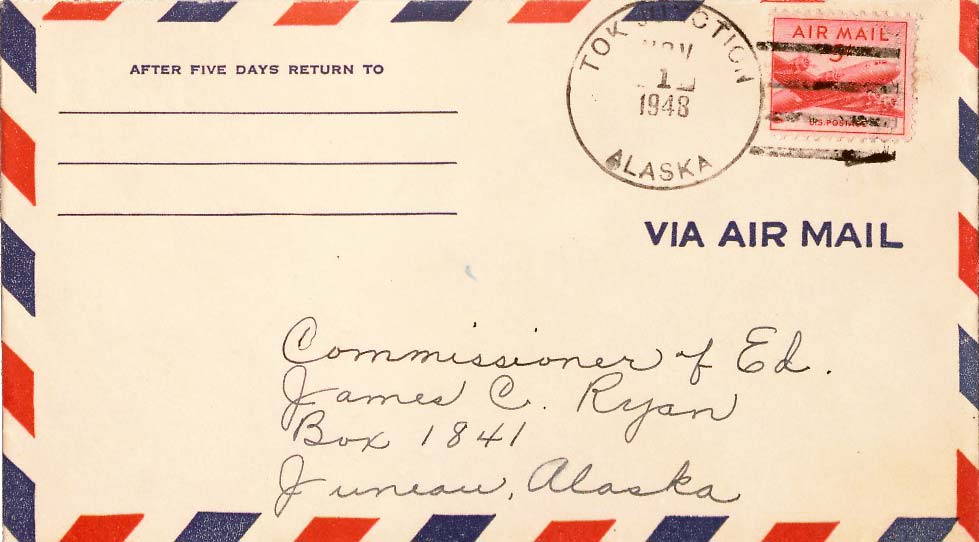 AFTER FIVE DAYS RETURN TO
TOK JUNCTION
NOV
1948
ALASKA
AIR MAIL
5
U.S. POSTAGE
VIA AIR MAIL
Commissioner of Ed.
James C. Ryan
Box 1841
Juneau, Alaska